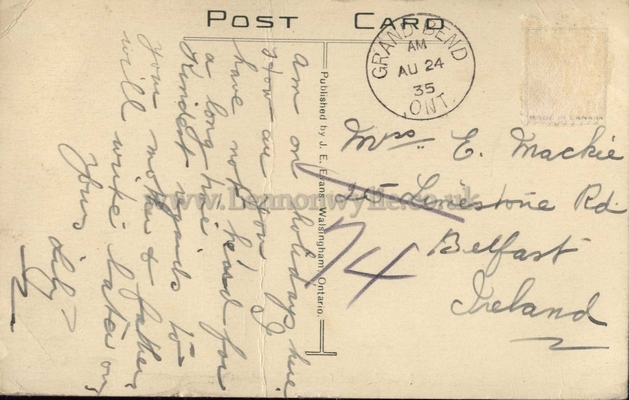 POST CARD
GRAND BEND
AM
AU 24
35
ONT.
MADE IN CANADA
am on holidays here
How are you I
have not heard for
a long time
Kindest regards to
your mother & father
will write later on
Yours
Published by J. E. Evans, Walsingham, Ontario.
E. Mackie
Limestone Rd.
Belfast
Ireland
74
www.Lennonwylie.co.uk